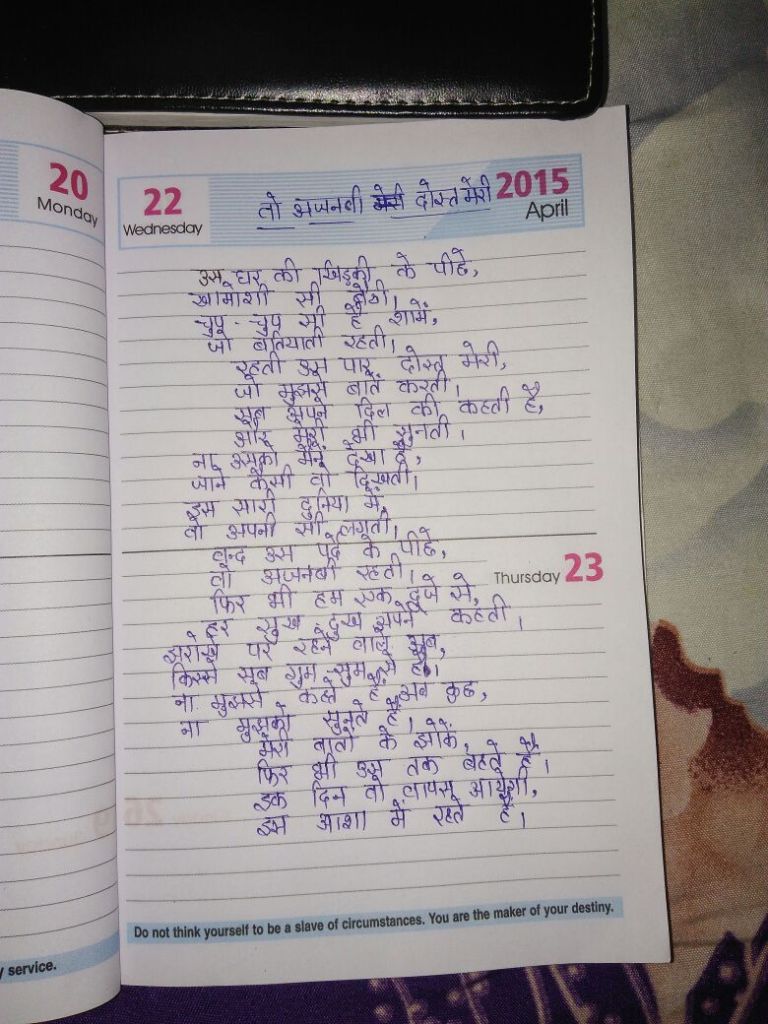 20
Monday
22
Wednesday
तो अजनबी दोस्त मेरी
2015
April
उस घर की खिड़की के पीछे,
खामोशी सी बैठी।
चुप - चुप सी है शामें,
जो बतियाती रहती।
रहती उस पार दोस्त मेरी,
जो मुझसे बातें करती।
सब अपने दिल की कहती है,
और मेरी भी सुनती।
ना उसको मैंने देखा है,
जाने कैसी वो दिखती।
इस सारी दुनिया में,
वो अपनी सी लगती।
बन्द उस पर्दे के पीछे,
वो अजनबी रहती।
Thursday 23
फिर भी हम एक दूजे से,
हर सुख दुख अपने कहती।
झरोखे पर रहने वाले सब,
किस्से सब गुम-सुम से है।
ना मुझसे कहते है अब कुछ,
ना मुझको सुनते है।
मेरी बातों के झोकें,
फिर भी उस तक बहते है।
इक दिन वो वापस आयेगी,
इस आशा में रहते है।
Do not think yourself to be a slave of circumstances. You are the maker of your destiny.
y service.